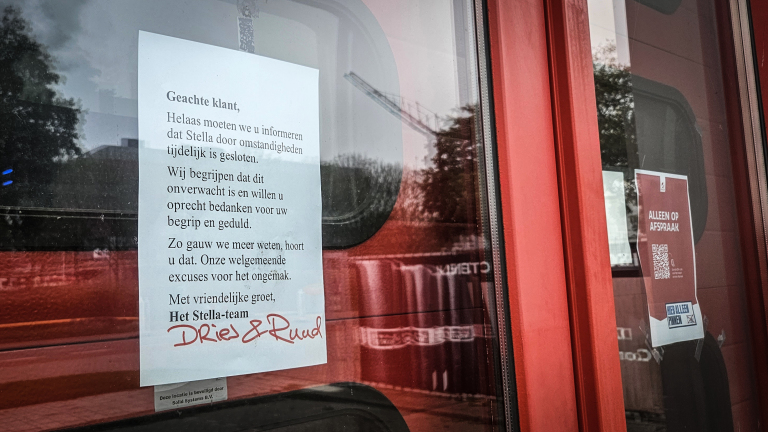 Geachte klant,
Helaas moeten we u informeren
dat Stella door omstandigheden
tijdelijk is gesloten.
Wij begrijpen dat dit
onverwacht is en willen u
oprecht bedanken voor uw
begrip en geduld.
Zo gauw we meer weten, hoort
u dat. Onze welgemeende
excuses voor het ongemak.
Met vriendelijke groet,
Het Stella-team
Dries & Ruud
Deze locatie is beveiligd door
Solid Systems B.V.
ALLEEN OP
AFSPRAAK
HIER ALLEEN
PINNEN